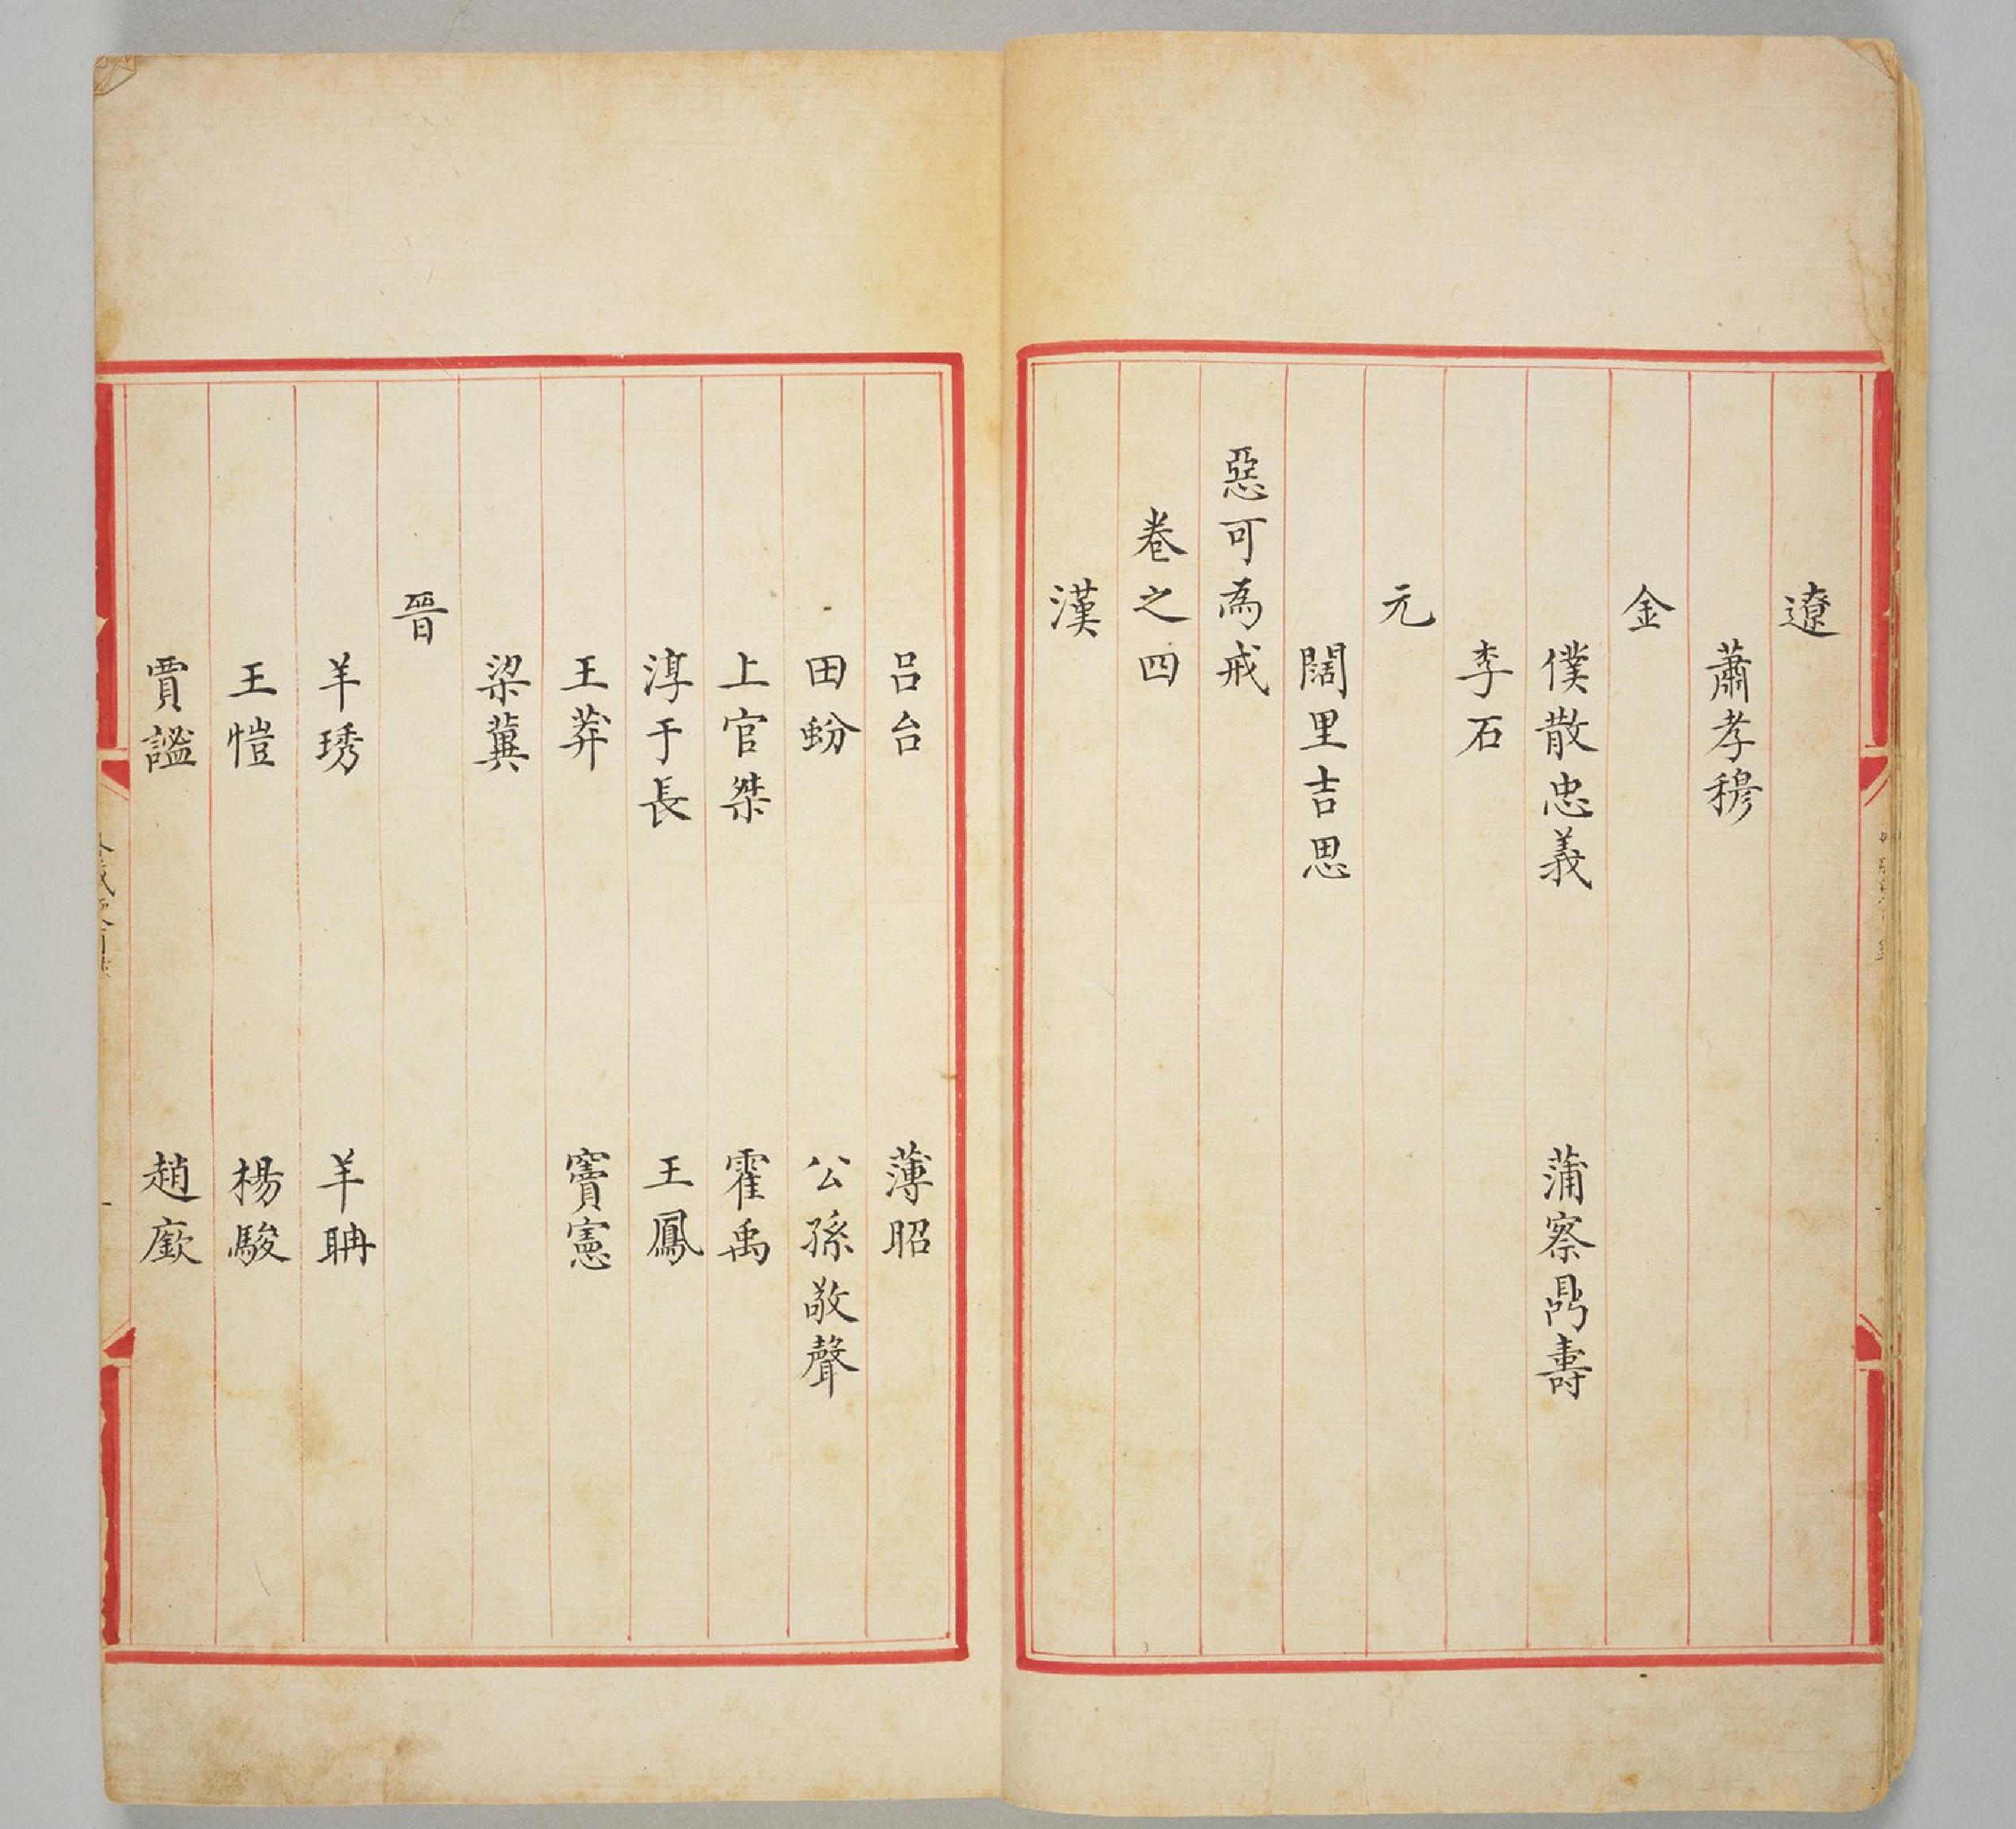 遼
蕭孝穆
金
僕散忠義　蒲察鼎壽
李石
元
闊里吉思
惡可為戒
卷之四
漢
呂台　薄昭
田蚡　公孫敬聲
上官桀　霍禹
淳于長　王鳳
王莽　竇憲
梁冀
晉
羊琇　羊聃
王愷　楊駿
賈謐　趙廞